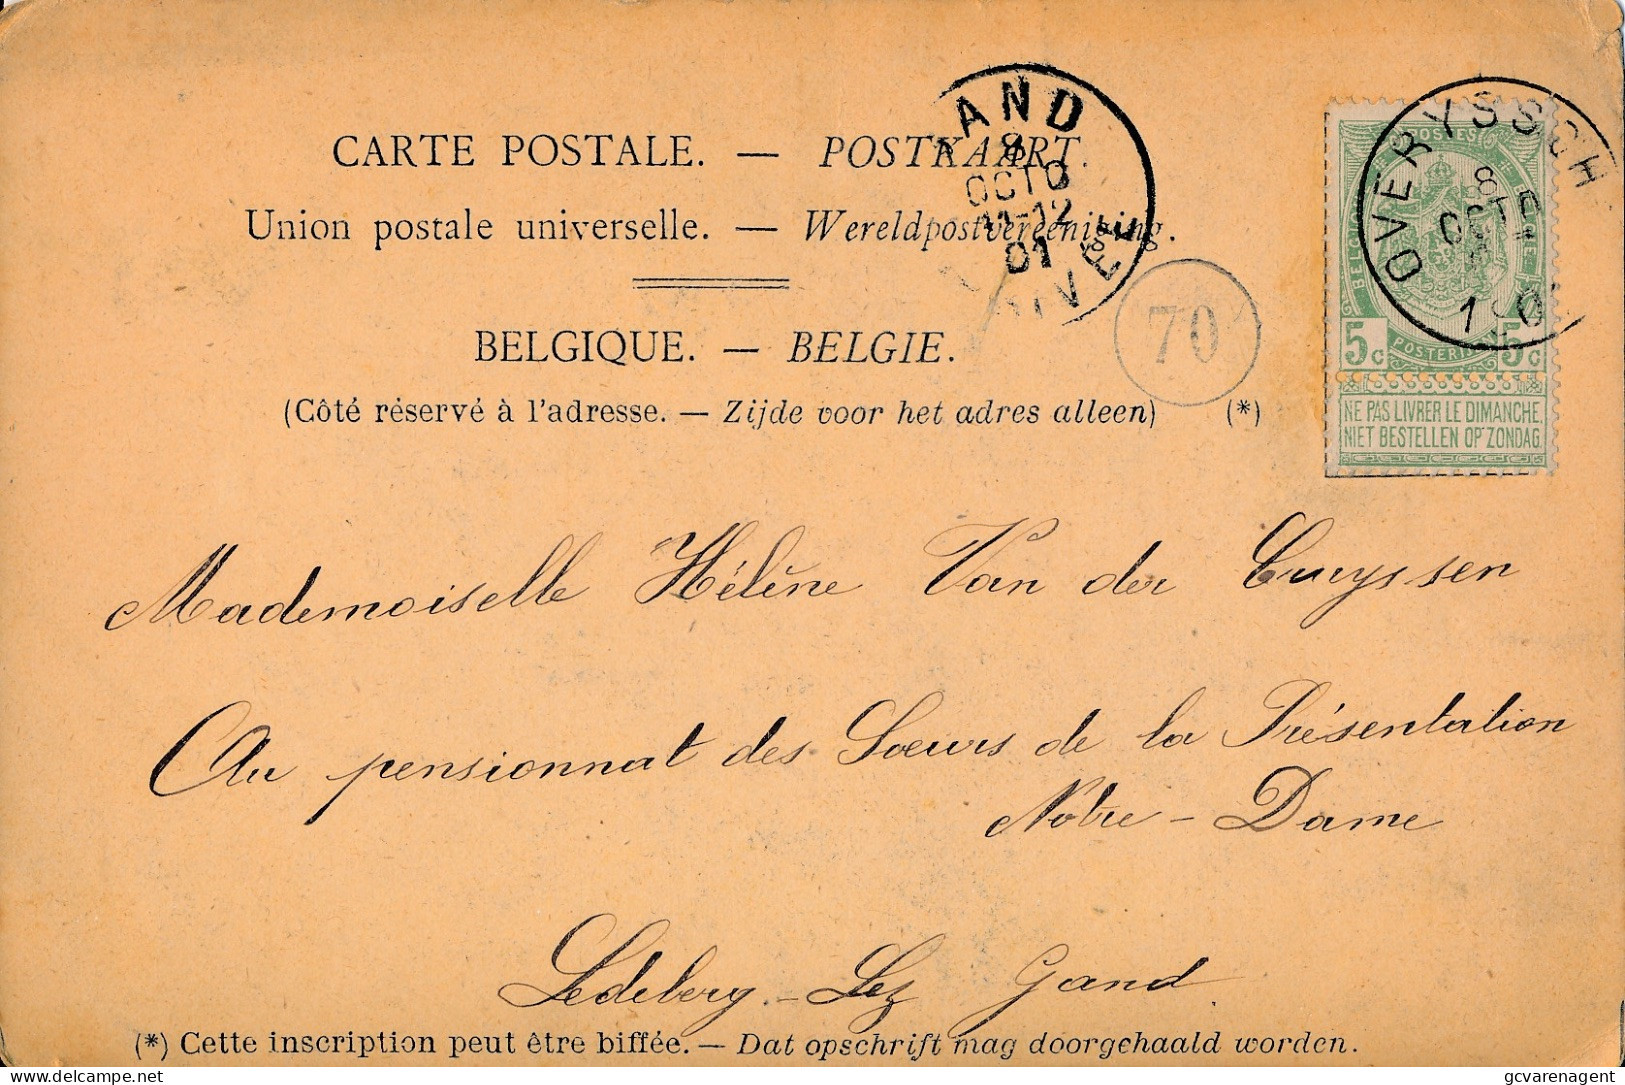 CARTE POSTALE. — POSTKAART.
Union postale universelle. — Wereldpostvereeniging.
BELGIQUE. — BELGIE.
(Côté réservé à l'adresse. — Zijde voor het adres alleen) (*)
GAND
8
OCTO
11-12
01
70
OVERYSSCHE
8
OCTO
1901
POSTES
BELGIQUE
POSTERIJ
5c 5c
NE PAS LIVRER LE DIMANCHE,
NIET BESTELLEN OP ZONDAG.
Mademoiselle Hélène Van der Cruyssen
Au pensionnat des Sœurs de la Présentation
Notre-Dame
Ledeberg-Lez Gand.
(*) Cette inscription peut être biffée. — Dat opschrift mag doorgehaald worden.
delcampe.net
gcvarenagent